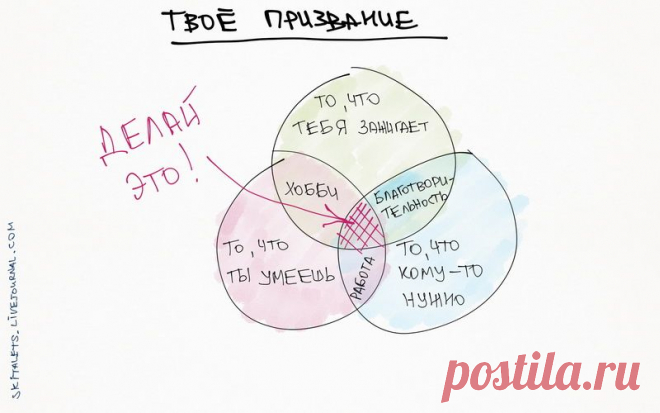 ТВОЁ ПРИЗВАНИЕ
ДЕЛАЙ
ЭТО!
ТО, ЧТО
ТЕБЯ ЗАЖИГАЕТ
ХОББИ
БЛАГОТВОРИ-
ТЕЛЬНОСТЬ
ТО, ЧТО
ТЫ УМЕЕШЬ
РАБОТА
ТО, ЧТО
КОМУ-ТО
НУЖНО
SKITALETS.LIVEJOURNAL.COM
postila.ru